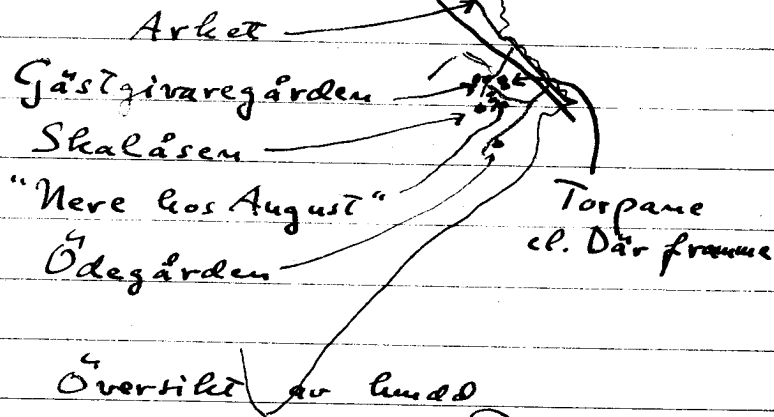 Arket
Gästgivaregården
Skalåsen
"Nere hos August"
Ödegården
Torpane
el. Där framme
Översikt av